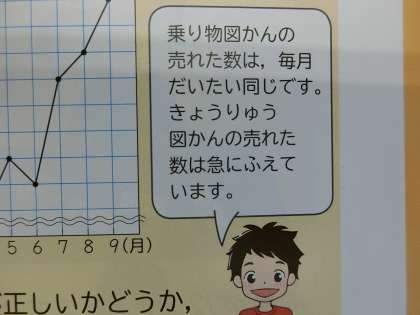 乗り物図かんの
売れた数は，毎月
だいたい同じです。
きょうりゅう
図かんの売れた
数は急にふえて
います。
5 6 7 8 9(月)
正しいかどうか，